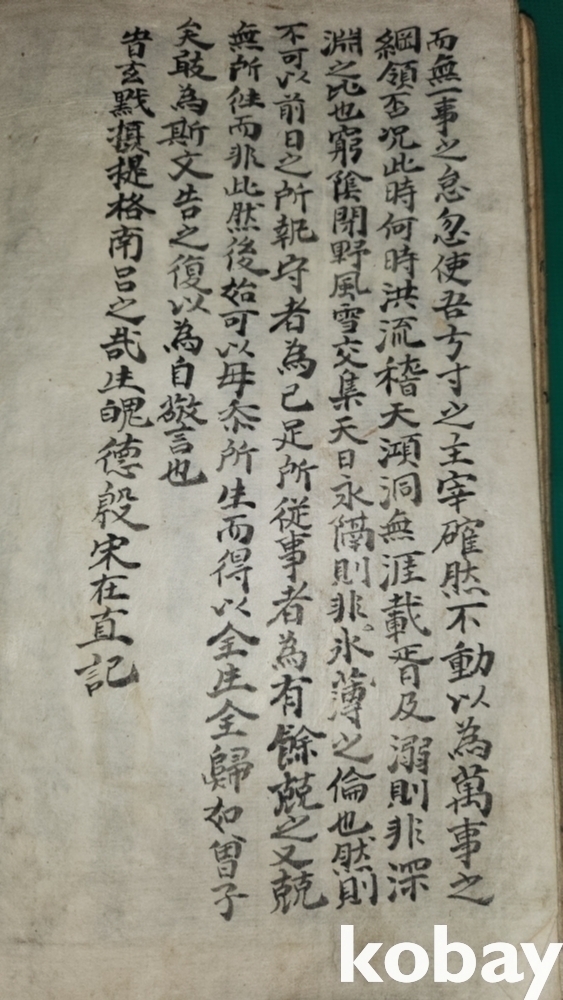 而無一事之怠忽使吾方寸之主宰確然不動以為萬事之
綱領否况此時何時洪流稽天澒洞無涯載胥及溺則非深
淵之比也窮陰閉野風雪交集天日永隔則非氷薄之倫也然則
不可以前日之所執守者為已足所從事者為有餘兢之又兢
無所徃而非此然後始可以毋忝所生而得以全生全歸如曾子
矣敢為斯文告之復以為自警言也
旹玄黓摄提格南呂之哉生魄德殷宋在直記
kobay